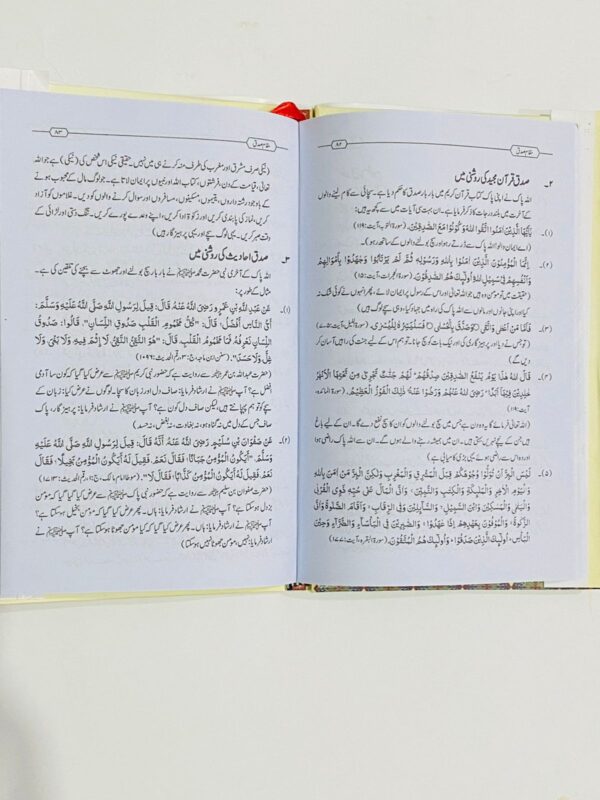 ۸۲
مقامِ صدق
۲۔ صدق قرآن مجید کی روشنی میں
اللہ پاک نے اپنی پاک کتاب قرآن کریم میں بار بار صدق کا حکم دیا ہے۔ سچائی سے کام لینے والوں
کے آخرت میں بلند درجات کا ذکر فرمایا ہے۔ ان بہت سی آیات میں سے کچھ یہ ہیں:
(۱)۔ یٰٓاَیُّهَا الَّذِیْنَ اٰمَنُوا اتَّقُوا اللّٰهَ وَكُوْنُوْا مَعَ الصّٰدِقِیْنَ۔ (سورۃ التوبہ، آیت:۱۱۹)
(اے ایمان والو! اللہ پاک سے ڈرتے رہو اور سچ بولنے والوں کے ساتھ رہو)۔
(۲)۔ اِنَّمَا الْمُؤْمِنُوْنَ الَّذِیْنَ اٰمَنُوْا بِاللّٰهِ وَرَسُوْلِهٖ ثُمَّ لَمْ یَرْتَابُوْا وَجٰهَدُوْا بِاَمْوَالِهِمْ
وَاَنْفُسِهِمْ فِیْ سَبِیْلِ اللّٰهِ اُولٰٓئِكَ هُمُ الصّٰدِقُوْنَ۔ (سورۃ الحجرات، آیت:۱۵)
(حقیقت میں تو مومن وہ ہیں جو اللہ تعالیٰ اور اس کے رسول پر ایمان لائے۔ پھر انہوں نے کوئی شک نہ
کیا اور اپنے مالوں اور جانوں سے اللہ کی راہ میں جہاد کیا۔ یہی لوگ سچے ہیں)
(۳)۔ فَاَمَّا مَنْ اَعْطٰی وَاتَّقٰی ○ وَصَدَّقَ بِالْحُسْنٰی ○ فَسَنُیَسِّرُهٗ لِلْیُسْرٰی۔ (سورۃ اللیل، آیت:۵-۷)
(تو جس نے دیا اور پرہیزگاری کی اور نیک بات کو سچ جانا۔ تو ہم اس کے لیے جنت کی راہیں آسان کر
دیں گے)
(۴)۔ قَالَ اللّٰهُ هٰذَا یَوْمُ یَنْفَعُ الصّٰدِقِیْنَ صِدْقُهُمْ ؕ لَهُمْ جَنّٰتٌ تَجْرِیْ مِنْ تَحْتِهَا الْاَنْهٰرُ
خٰلِدِیْنَ فِیْهَاۤ اَبَدًا ؕ رَضِیَ اللّٰهُ عَنْهُمْ وَرَضُوْا عَنْهُ ؕ ذٰلِكَ الْفَوْزُ الْعَظِیْمُ۔ (سورۃ المائدہ،
آیت:۱۱۹)
(اللہ تعالیٰ فرمائے گا یہ وہ دن ہے جس میں سچ بولنے والوں کو ان کا سچ نفع دے گا۔ ان کے لیے باغ
ہیں جن کے نیچے نہریں بہتی ہیں۔ ان میں ہمیشہ رہنے والے ہوں گے۔ ان سے اللہ پاک راضی ہوا
اور وہ اس سے راضی ہوئے یہی بڑی کامیابی ہے)
(۵)۔ لَیْسَ الْبِرَّ اَنْ تُوَلُّوْا وُجُوْهَكُمْ قِبَلَ الْمَشْرِقِ وَالْمَغْرِبِ وَلٰكِنَّ الْبِرَّ مَنْ اٰمَنَ بِاللّٰهِ
وَالْیَوْمِ الْاٰخِرِ وَالْمَلٰٓئِكَةِ وَالْكِتٰبِ وَالنَّبِیّٖنَ ۚ وَاٰتَی الْمَالَ عَلٰی حُبِّهٖ ذَوِی الْقُرْبٰی
وَالْیَتٰمٰی وَالْمَسٰكِیْنَ وَابْنَ السَّبِیْلِ ۙ وَالسَّآئِلِیْنَ وَفِی الرِّقَابِ ۚ وَاَقَامَ الصَّلٰوةَ وَاٰتَی
الزَّكٰوةَ ۚ وَالْمُوْفُوْنَ بِعَهْدِهِمْ اِذَا عٰهَدُوْا ۚ وَالصّٰبِرِیْنَ فِی الْبَاْسَآءِ وَالضَّرَّآءِ وَحِیْنَ
الْبَاْسِ ؕ اُولٰٓئِكَ الَّذِیْنَ صَدَقُوْا ؕ وَاُولٰٓئِكَ هُمُ الْمُتَّقُوْنَ۔ (سورۃ البقرہ، آیت:۱۷۷)
مقامِ صدق
۸۳
(نیکی صرف مشرق اور مغرب کی طرف منہ کرنے ہی میں نہیں۔ حقیقی نیکی اس شخص کی (ہے) ہے جو اللہ
تعالیٰ، قیامت کے دن، فرشتوں، کتاب اللہ اور نبیوں پر ایمان لاتا ہے۔ جو لوگ مال کے محبوب ہونے
کے باوجود رشتہ داروں، یتیموں، مسکینوں، مسافروں اور سوال کرنے والوں کو دیں۔ غلاموں کو آزاد
کریں، نماز کی پابندی کریں اور زکوۃ ادا کریں، وعدے پورے کریں۔ تنگ دستی اور لڑائی کے
وقت صبر کریں۔ یہی لوگ سچے اور یہی پرہیزگار ہیں)
۳۔ صدق احادیث کی روشنی میں
اللہ پاک کے آخری نبی حضرت محمد ﷺ نے بار بار سچ بولنے اور جھوٹ سے بچنے کی تلقین کی ہے۔
مثال کے طور پر:
(۱)۔ عَنْ عَبْدِ اللّٰهِ بْنِ عَمْرٍو رَضِیَ اللّٰهُ عَنْهُ قَالَ: قِیْلَ لِرَسُوْلِ اللّٰهِ صَلَّی اللّٰهُ عَلَیْهِ وَسَلَّمَ:
اَیُّ النَّاسِ اَفْضَلُ، قَالَ: "كُلُّ مَخْمُوْمِ الْقَلْبِ صَدُوْقِ اللِّسَانِ". قَالُوْا: صَدُوْقُ
اللِّسَانِ نَعْرِفُهٗ فَمَا مَخْمُوْمُ الْقَلْبِ قَالَ: "هُوَ التَّقِیُّ النَّقِیُّ لَا اِثْمَ فِیْهِ وَلَا بَغْیَ وَلَا
غِلَّ وَلَا حَسَدَ". (سنن ابن ماجہ، ج، رقم الحدیث:۱۰۹۲)
(حضرت عبداللہ بن عمرو سے روایت ہے کہ حضور نبی کریم ﷺ سے عرض کیا گیا کون سا آدمی
افضل ہے؟ آپ ﷺ نے ارشاد فرمایا: صاف دل اور زبان کا سچا۔ لوگوں نے عرض کیا: زبان کے
سچے کو تو ہم پہچانتے ہیں، لیکن صاف دل کون ہے؟ آپ ﷺ نے ارشاد فرمایا: پرہیزگار، پاک
صاف جس کے دل میں نہ گناہ ہو، نہ بغاوت، نہ بغض، نہ حسد)
(۲)۔ عَنْ صَفْوَانَ بْنِ سُلَیْمٍ رَضِیَ اللّٰهُ عَنْهُ اَنَّهٗ قَالَ: قِیْلَ لِرَسُوْلِ اللّٰهِ صَلَّی اللّٰهُ عَلَیْهِ
وَسَلَّمَ: "اَیَكُوْنُ الْمُؤْمِنُ جَبَانًا؟ فَقَالَ: نَعَمْ، فَقِیْلَ لَهٗ اَیَكُوْنُ الْمُؤْمِنُ بَخِیْلًا؟، فَقَالَ
نَعَمْ، فَقِیْلَ لَهٗ اَیَكُوْنُ الْمُؤْمِنُ كَذَّابًا؟، فَقَالَ لَا". (موطا امام مالک، ج، رقم الحدیث:۱۷۱۳)
(حضرت صفوان بن سلیم سے روایت ہے کہ حضور نبی پاک ﷺ سے عرض کیا گیا کہ مومن
بزدل ہو سکتا ہے؟ آپ ﷺ نے ارشاد فرمایا: ہاں۔ پھر عرض کیا گیا کیا مومن بخیل ہو سکتا ہے؟
آپ ﷺ نے ارشاد فرمایا: ہاں۔ پھر عرض کیا گیا کہ کیا مومن جھوٹا ہو سکتا ہے؟ آپ ﷺ نے
ارشاد فرمایا: نہیں، مومن جھوٹا نہیں ہو سکتا)